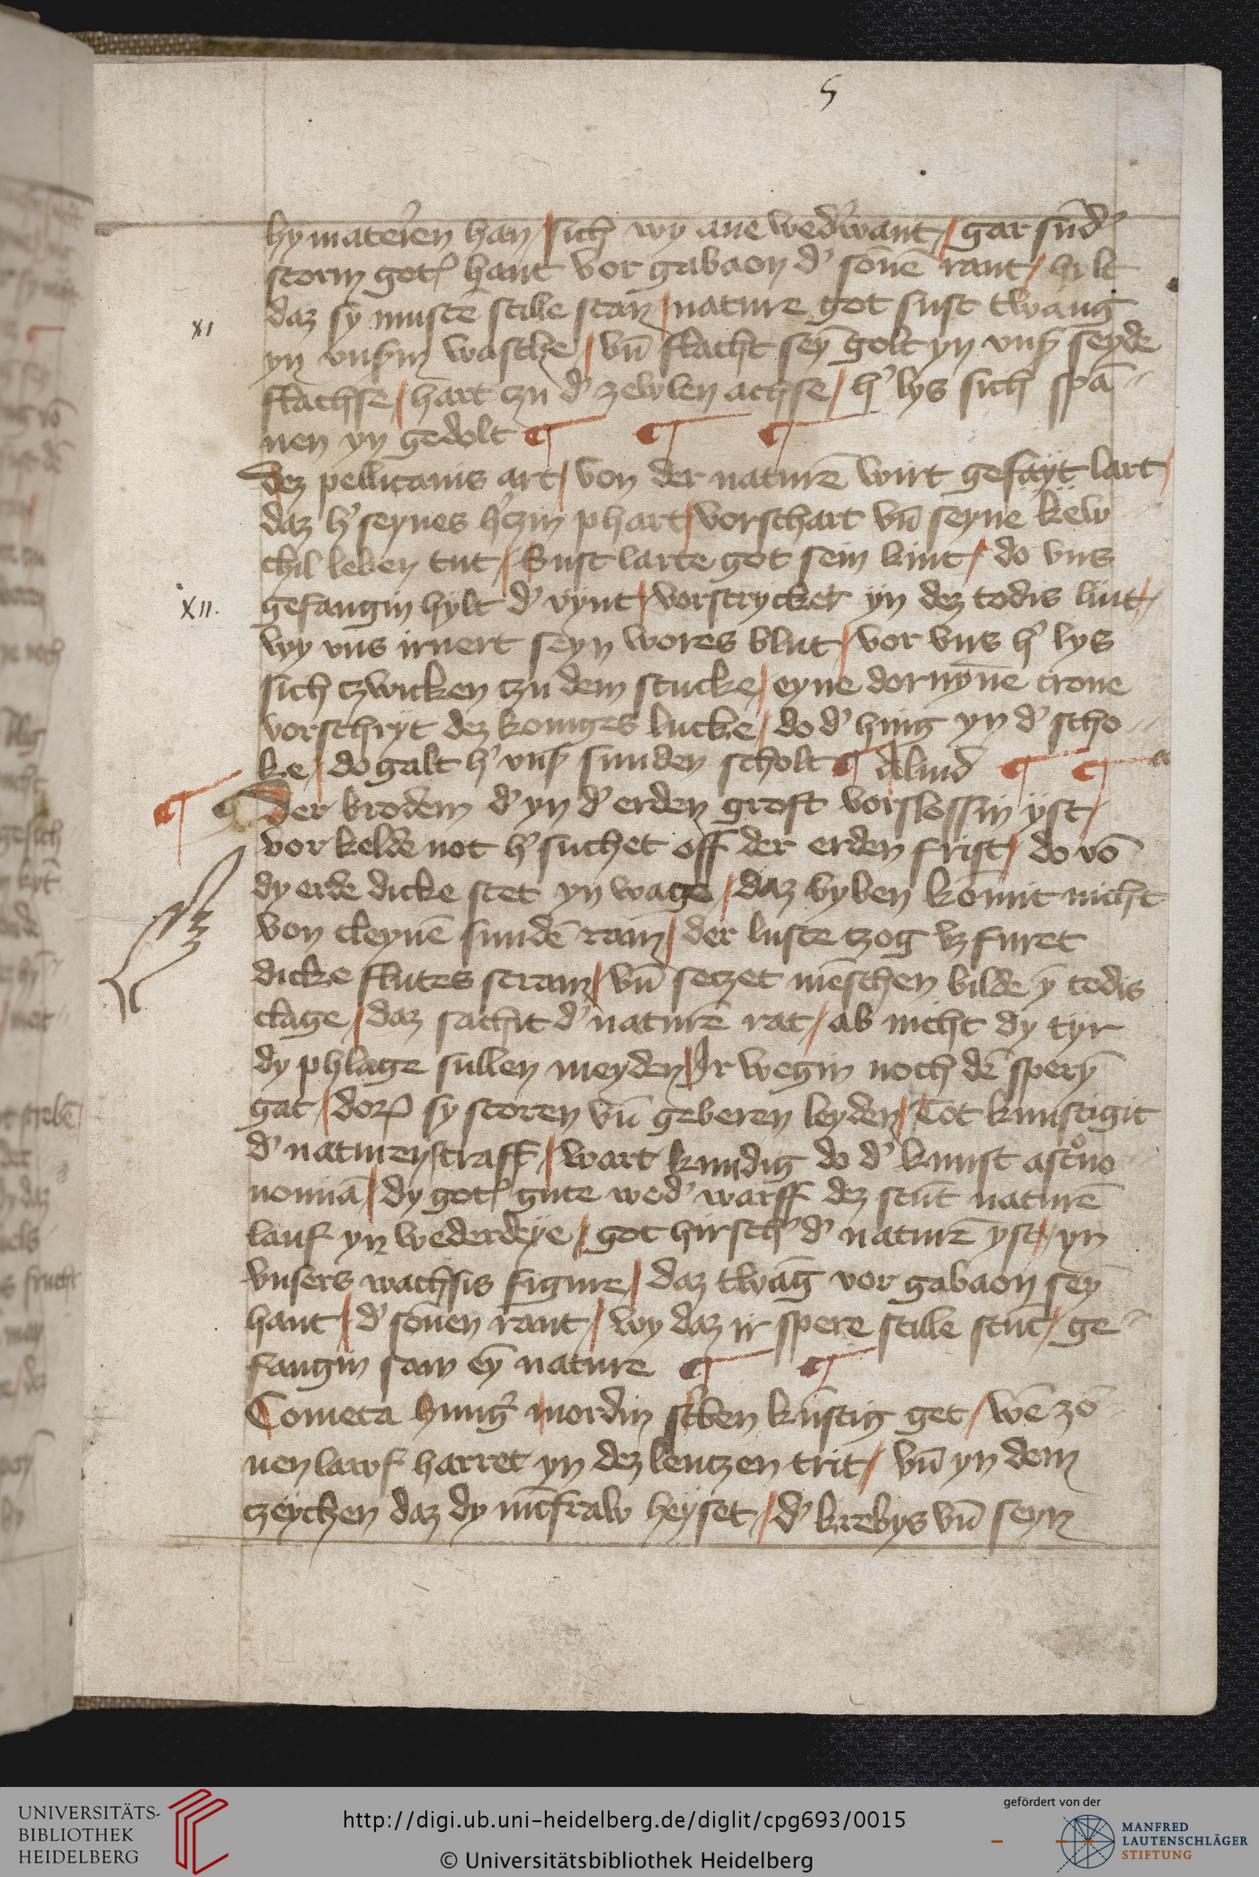 5
hy materien han / sich wy ane wed'want / gar sund'
storm gotꝭ hant vor gabaon d' sōnē rant / hylt
daz sy mustē stille stan / nature got sust twang
XI
yn vnsꝭm wasche / vn̄ flacht sey golt yn vnsꝭ seyde
flachse / hart tzu d' zewben achse / h' lys sich spā
nen yn gedolt ¶ ¶ ¶
Dez pellicanus art / von der naturē wirt gesayt lart /
daz h' seynes h'tzin phart / vorschart vn̄ seyne kew
chil leben tut / Sust larte got sein kint / do vns
XII.
gefangin hylt d' vynt / vorstrycket yn dez todis lint /
wy vns irnert seyn wores blut / vor vns h' lys
sich tzwicken tzu dem stucke / eyne dornyne crone
vorschryt dez koniges lucke / do d' hing yn d' scho
ke / do galt h' vnsꝭ sunden scholt ¶ Aliud ¶ ¶
¶ Der brodem d' yn d' erden groft vorslossin yst /
vor kelde not h' suchet off der erden frist / do vō
dy erde dicke stet yn wage / daz byben komit nicht
von cleynē sundē ram / der luste tzog vz furet
dicke flutes stram / vn̄ setzet mēschen bilde y todis
clage / daz sachit d' naturē rat / ab nicht dy tyr
dy phlage sullen meyden / Ir wegin noch dē spery
gat / dorꝭ sy storen vn̄ geberen leyden / Tot kunstigit
d' naturen straff / wart kundig do d' kunst astᵒno
nomiā / dy gotꝭ gute wed' warff dez stūt naturē
lauf yn wederdeye / got hirsch' d' naturē yst / yn
vnsers wachsis figure / daz twāg vor gabaon sey
hant / d' sōnen rant / wy daz ir spere stille stut / ge
fangin sam ey nature ¶ ¶
Cometa hung' mordin st'ben kūstig get / wē zō
nen lawf harret yn dez lentzen trit / vn̄ yn dem
tzeychen daz dy iūcfraw heyset / d' krebys vn̄ seyn
UNIVERSITÄTS-
BIBLIOTHEK
HEIDELBERG
http://digi.ub.uni-heidelberg.de/diglit/cpg693/0015
© Universitätsbibliothek Heidelberg
gefördert von der
MANFRED
LAUTENSCHLÄGER
STIFTUNG